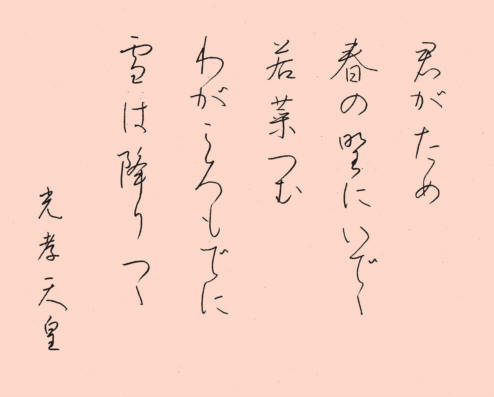 君がため
春の野にいでて
若菜つむ
わがころもでに
雪は降りつゝ
光孝天皇